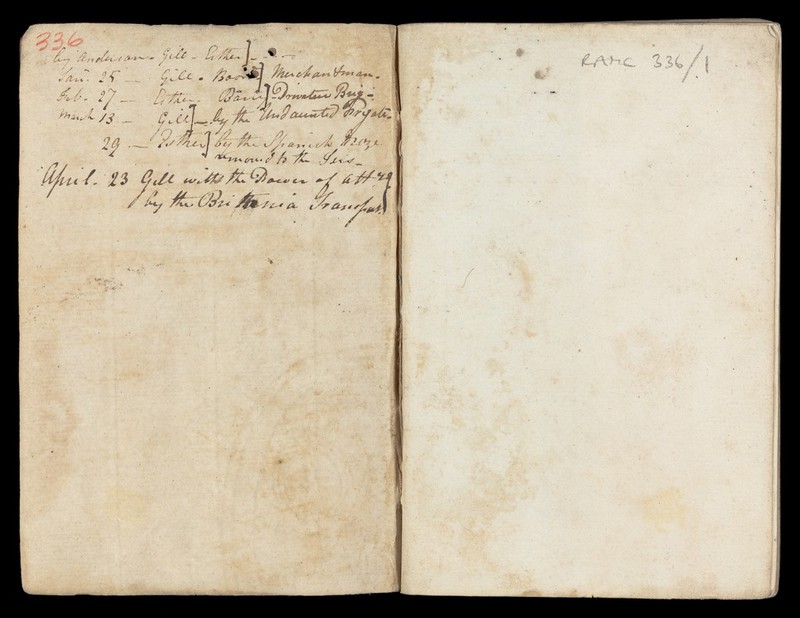 336
by Anderson - Gill - Esther] -
Jan. 25 — Gill - Boo ] Merchantman -
Feb. 27 — Esther - ] - Privateer Brig -
March 13 - Gill] - by the Undaunted Frigate -
29 — Esther] by the Spanish
removed to the
April - 23 Gill with the Power of Att
by the Brittania Transport.
RAMC 336/1